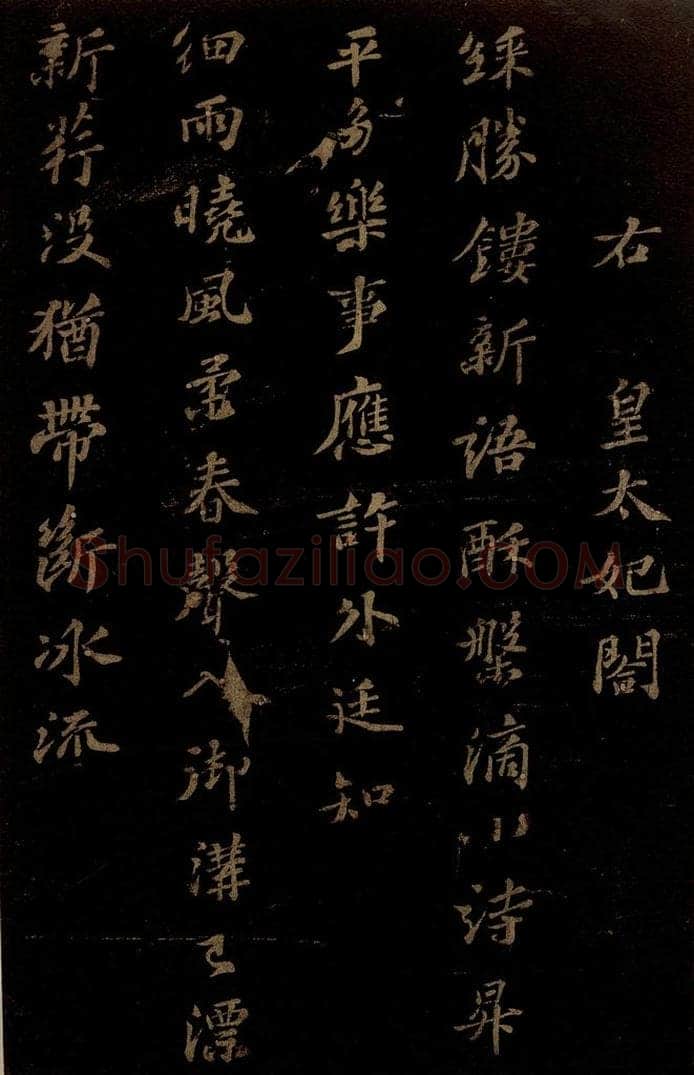 右 皇太妃閤
綵勝鏤新語酥槃滴小詩昇
平多樂事應許外廷知
細雨曉風柔春聲入御溝已漂
新荇没猶帶斷冰流
Shufaziliao.COM